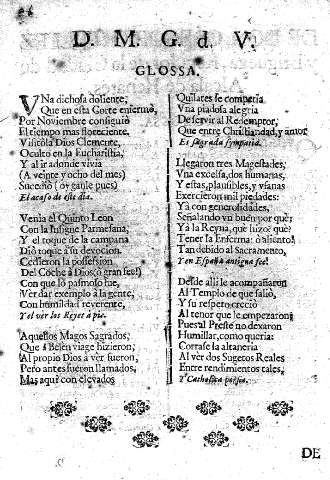 D. M. G. d. V.
GLOSSA.
VNa dichosa doliente,
Que en esta Corte enfermó,
Por Noviembre consiguiò
El tiempo mas floreciente.
Visitòla Dios Clemente,
Oculto en la Eucharistia,
Y al ir adonde vivia
(A veinte y ocho del mes)
Sucediò (oyganle pues)
El acaso de este dia.
Venia el Quinto Leon
Con la Insigne Parmesana,
Y el toque de la campana
Diò toque a su devocion.
Cedieron la possession
Del Coche à Dios (ò gran fee!)
Con que lo pasmoso fue,
Ver dar exemplo à la gente,
Con humildad reverente,
Y el ver los Reyes à pie.
Aquellos Magos Sagrados,
Que à Belen viage hizieron;
Al propio Dios à ver fueron,
Pero antes fueron llamados,
Mas aqui con elevados
Quilates se competia
Vna piadosa alegria
De servir al Redemptor,
Que entre Christiandad, y amor
Es sagrada sympatia.
Llegaron tres Magestades,
Vna excelsa, dos humanas,
Y estas, plausibles, y vfanas
Exercieron mil piedades:
Yà con generosidades,
Señalando vn buen por què;
Yà la Reyna, què luzoè què?
Tener la Enferma: ò aliento!
Tan debido al Sacramento,
Y en España antigua fee!
Desde alli le acompañaron
Al Templo de que saliò,
Y su respeto creciò
Al tenor que le empezaron;
Puesta! Preste no dexaron
Humillar, como queria:
Cortase la altaneria
Al ver dos Sugetos Reales
Entre rendimientos tales,
Y Catholica porfia.
DE